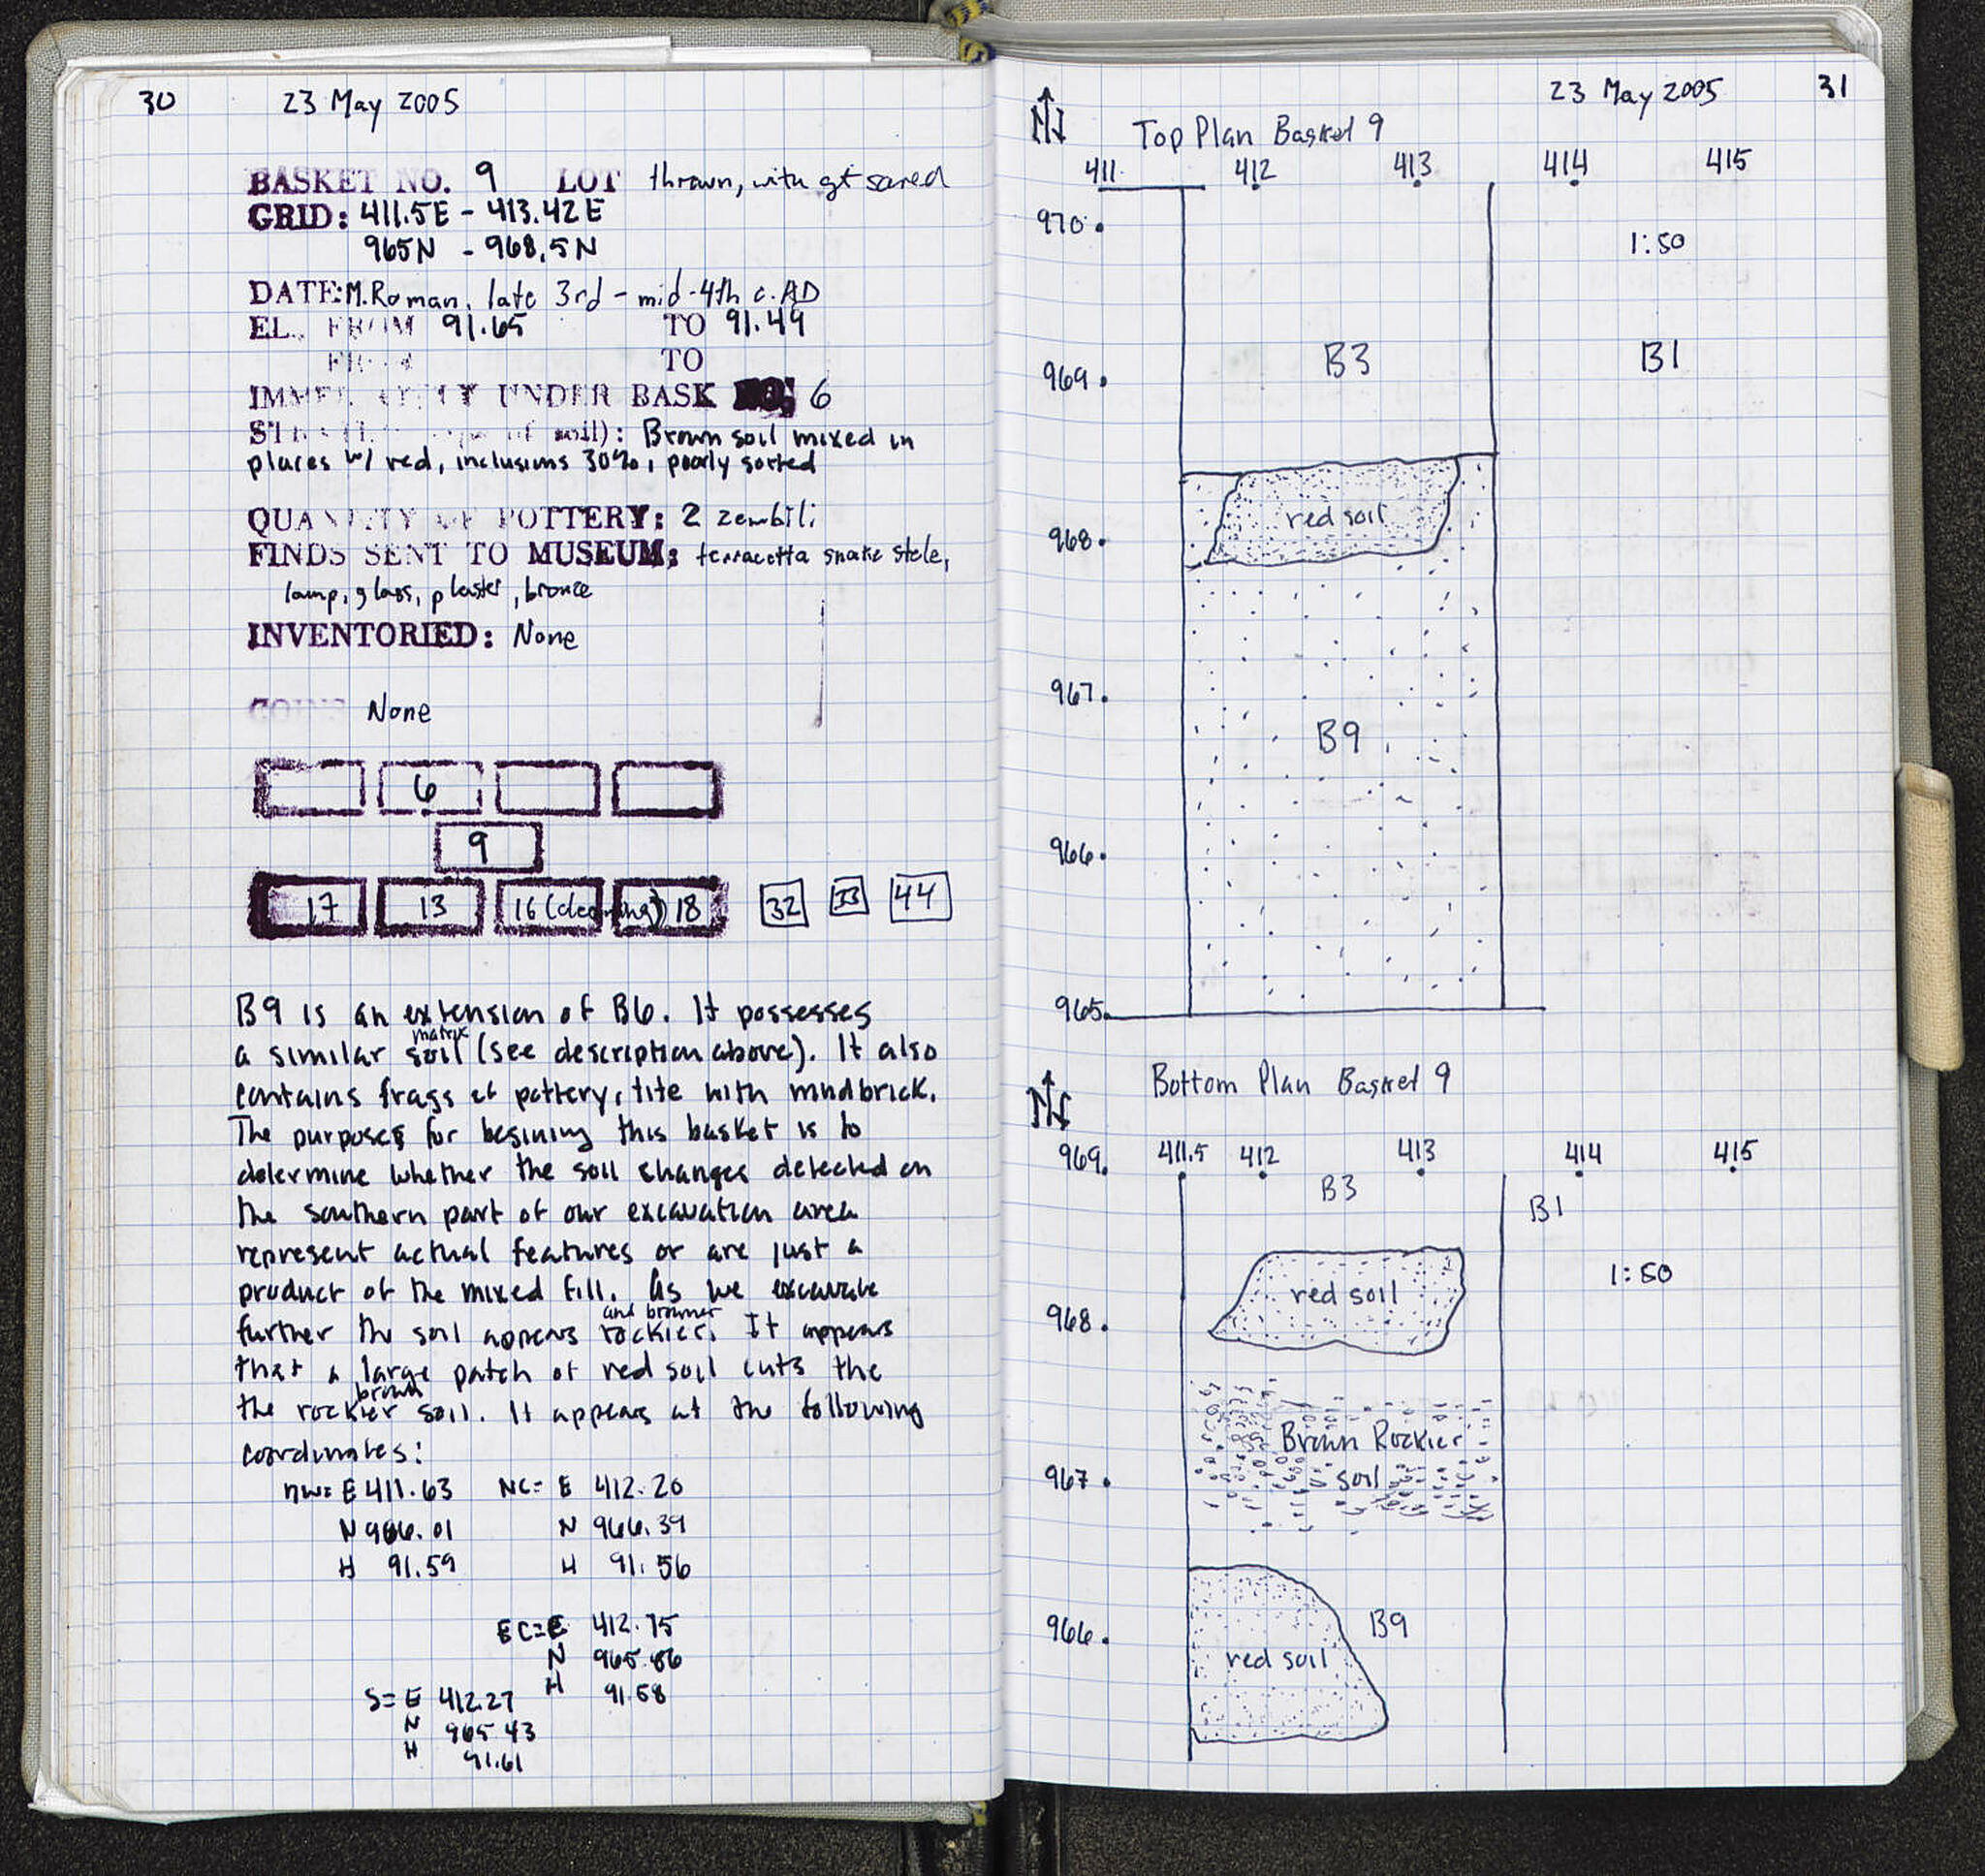 30 23 May 2005
BASKET NO. 9 LOT thrown, with gt saved
GRID: 411.5E - 413.42E
965N - 968.5N
DATE: M. Roman, late 3rd - mid-4th c. AD
EL. FROM 91.65 TO 91.49
FROM TO
UNDER BASK NO. 6
soil): Brown soil mixed in
places w/ red, inclusions 30%, poorly sorted
QUANTITY OF POTTERY: 2 zembili
FINDS SENT TO MUSEUM: terracotta snake stele,
lamp, glass, plaster, bronze
INVENTORIED: None
COINS None
6
9
17 13 16 (cleaning) 18 32 33 44
B9 is an extension of B6. It possesses
matrix
a similar soil (see description above). It also
contains frags of pottery, tile with mudbrick.
The purposes for begining this basket is to
determine whether the soil changes detected on
the southern part of our excavation area
represent actual features or are just a
product of the mixed fill. As we excavate
and browner
further the soil appears rockier. It appears
that a large patch of red soil cuts the
brown
the rockier soil. It appears at the following
coordinates:
nw= E 411.63 NC= E 412.20
N 966.01 N 966.39
H 91.59 H 91.56
EC= E 412.75
N 965.86
H 91.58
S= E 412.27
N 965.43
H 91.61
23 May 2005 31
N Top Plan Basket 9
411 412 413 414 415
970
1:50
969 B3 B1
red soil
968
967
B9
966
965
N Bottom Plan Basket 9
969 411.5 412 413 414 415
B3 B1
1:50
red soil
968
Brown Rockier
967 soil
966 B9
red soil